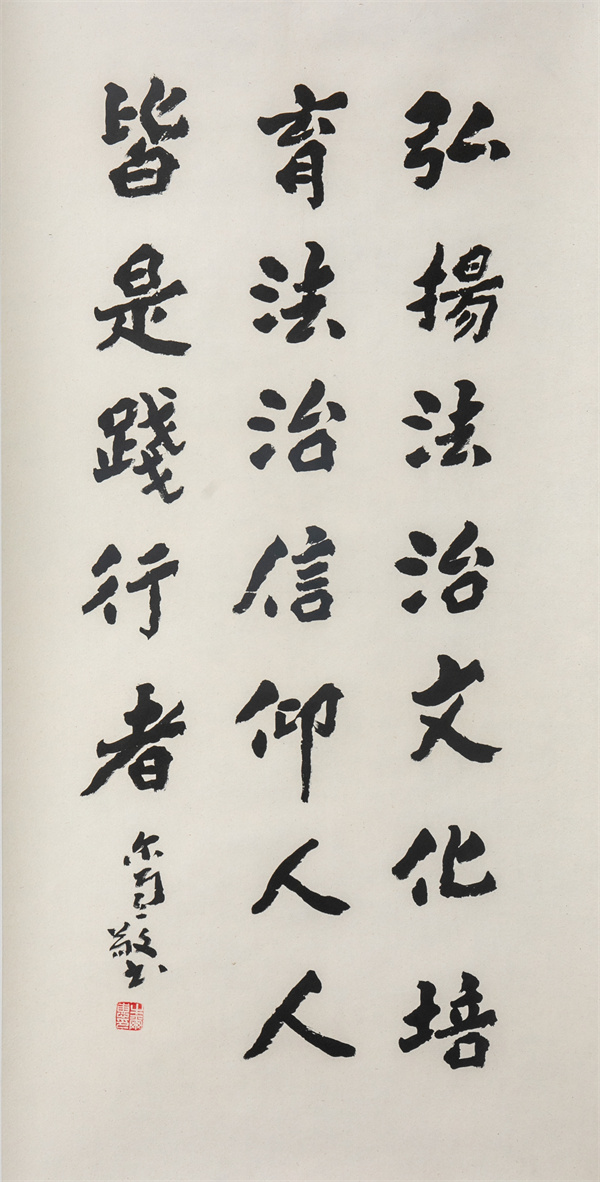 弘揚法治文化培
育法治信仰人人
皆是踐行者
敬書